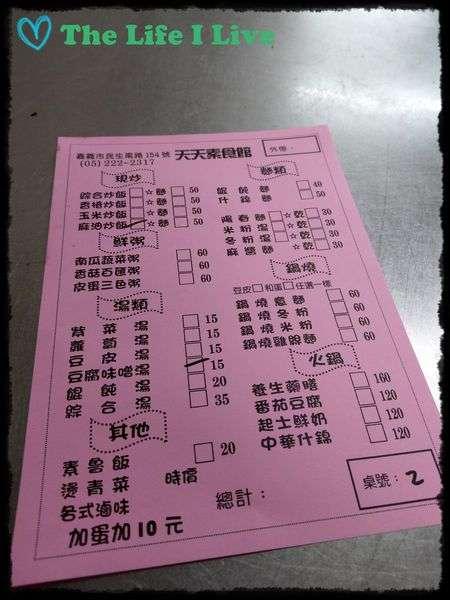 The Life I Live
嘉義市民生南路154號 天天素食館
(05) 222-2317
外帶：
現炒
綜合炒飯 ☆麵 50
香椿炒飯 ☆麵 50
玉米炒飯 ☆麵 50
麻油炒飯 ☆麵 50
鮮粥
南瓜蔬菜粥 60
香菇百匯粥 60
皮蛋三色粥 60
湯類
紫菜湯 15
蘿蔔湯 15
豆皮湯 15
豆腐味噌湯 15
餛飩湯 20
綜合湯 35
其他
素魯飯 20
燙青菜 時價
各式滷味
加蛋加10元
麵類
餛飩麵 40
什錦麵 50
陽春麵 ☆乾 30
米粉湯 ☆乾 30
冬粉湯 ☆乾 30
麻醬麵 30
鍋燒
豆皮 和蛋 任選一樣
鍋燒意麵 60
鍋燒冬粉 60
鍋燒米粉 60
鍋燒雞絲麵 60
火鍋
養生藥膳 160
番茄豆腐 120
起士鮮奶 120
中華什錦 120
總計：
桌號：2